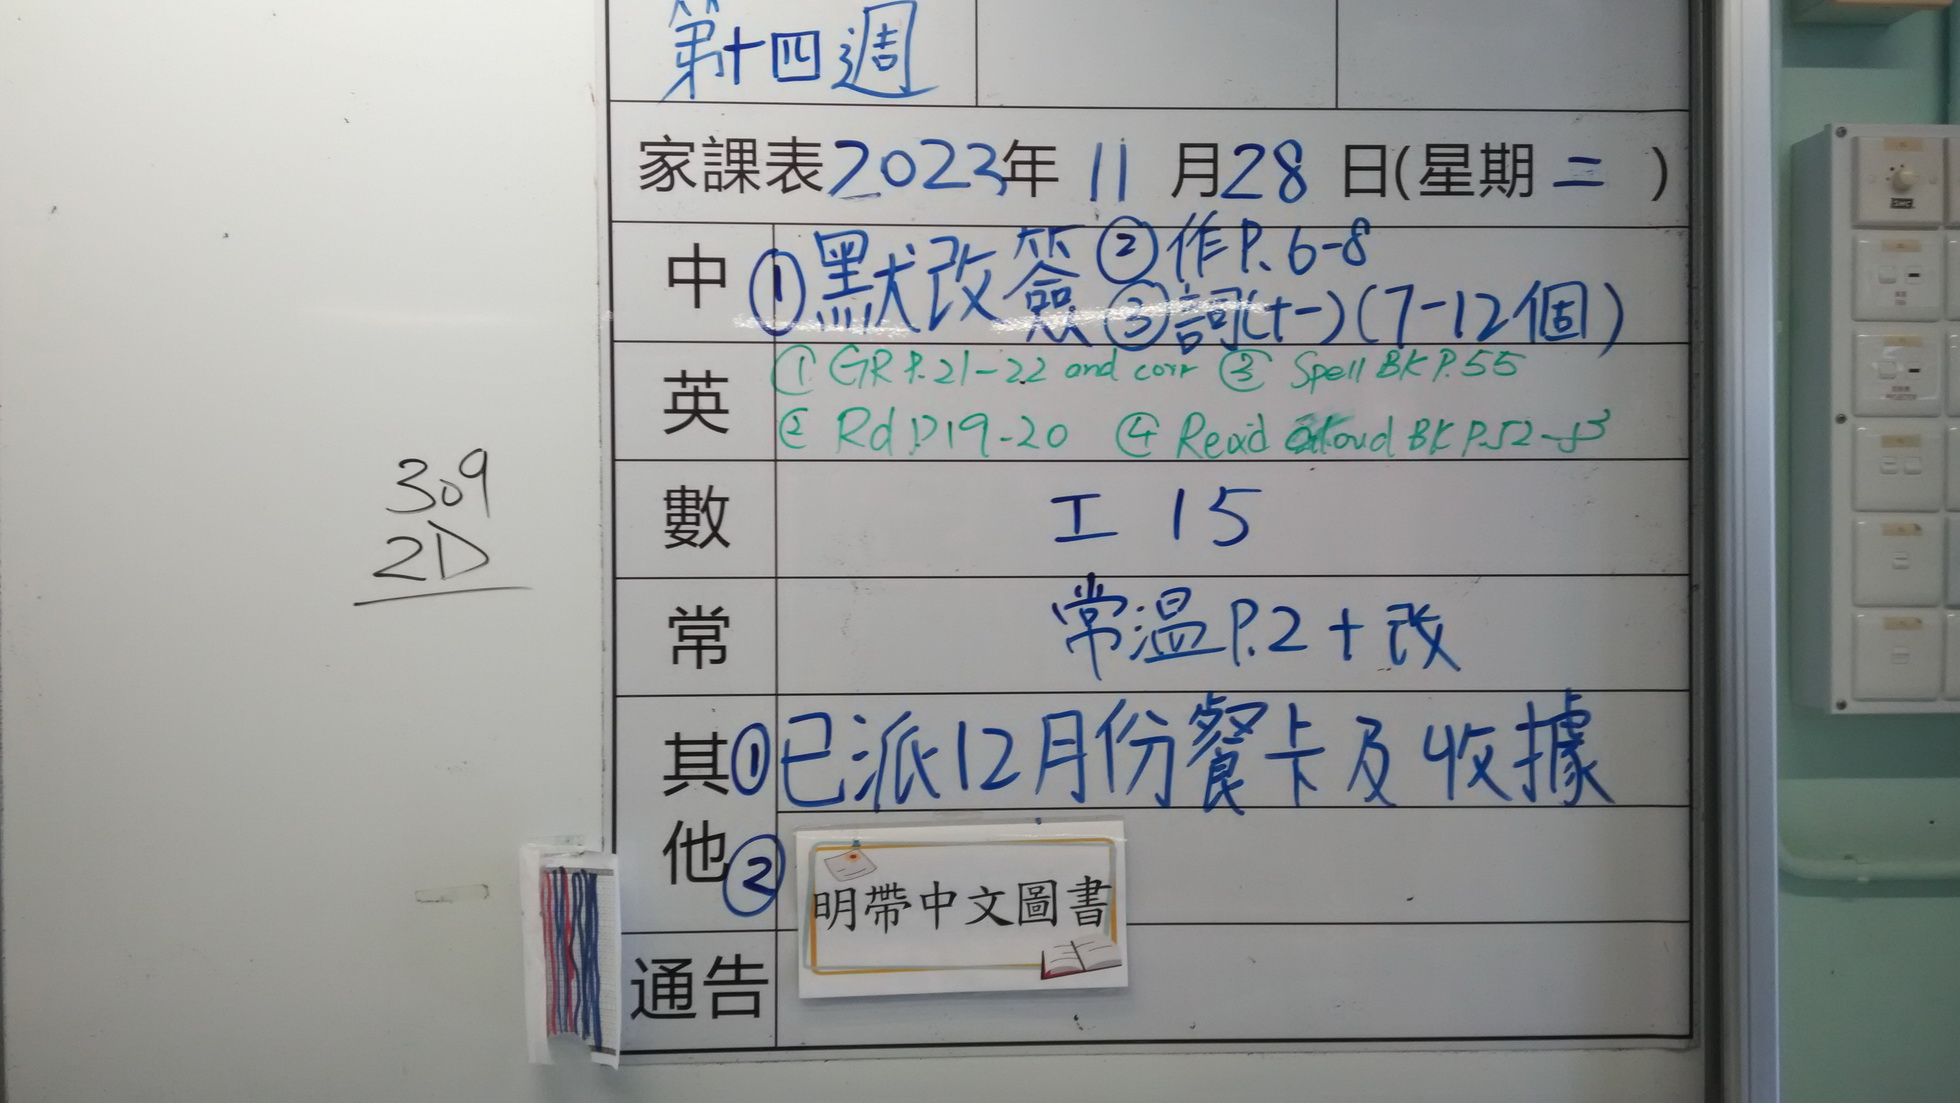 第十四週
家課表2023年 11 月28 日(星期 二 )
中 ①默改簽 ②作P. 6-8
③詞(十一)(7-12個)
英 ① GR P.21-22 and corr ③ Spell BK P.55
② Rd P19-20 ④ Read aloud BK P.52-53
309
數 工 15
2D
常 常溫P.2 + 改
其他 ①已派12月份餐卡及收據
② 明帶中文圖書
通告